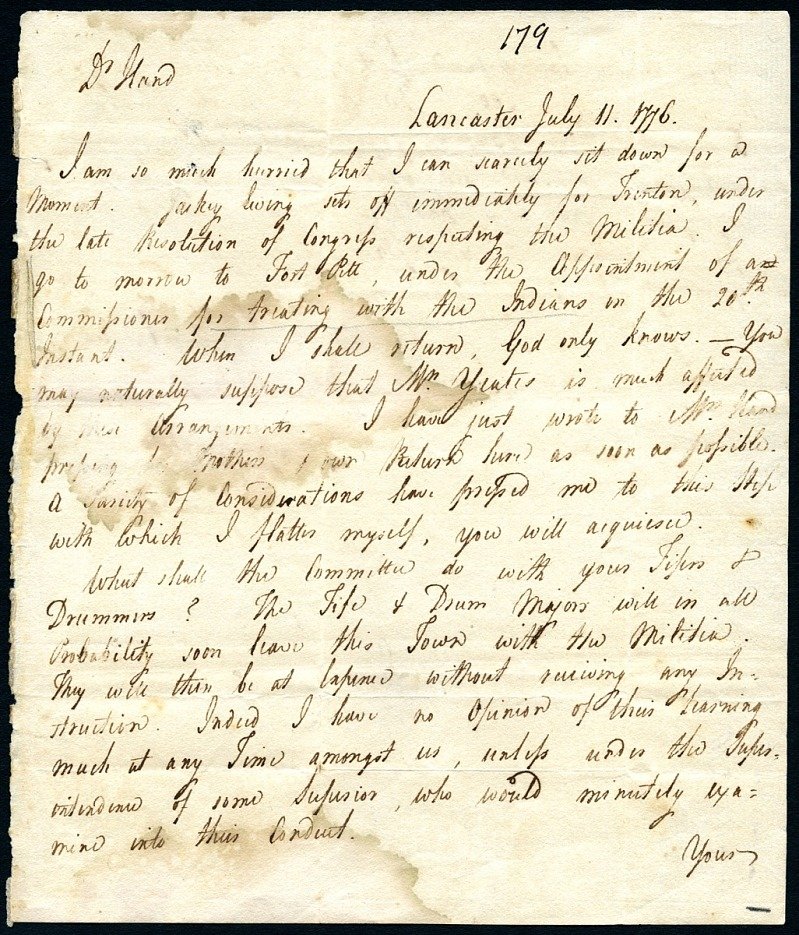 179
Dr Hand
Lancaster July 11. 1776.
I am so much hurried that I can scarcely sit down for a
Moment. Jackey Ewing sets off immediately for Trenton, under
the late Resolution of Congress respecting the Militia. I
go to morrow to Fort Pitt, under the Appointment of a
Commissioner for treating with the Indians on the 20th
Instant. When I shall return, God only knows. — You
may naturally suppose that Mrs Yeates is much affected
by these Arrangements. I have just wrote to Mrs Hand
pressing her Mother's & own Return here as soon as possible.
a Variety of Considerations have pressed me to this Step
with which I flatter myself, you will acquiesce.
What shall the Committee do with your Fifers &
Drummers? The Fife & Drum Majors will in all
Probability soon leave this Town with the Militia.
They will then be at Expence without receiving any In=
struction. Indeed I have no Opinion of their Learning
much at any Time amongst us, unless under the Super=
intendence of some Superior, who would minutely exa=
mine into their Conduct.
Yours